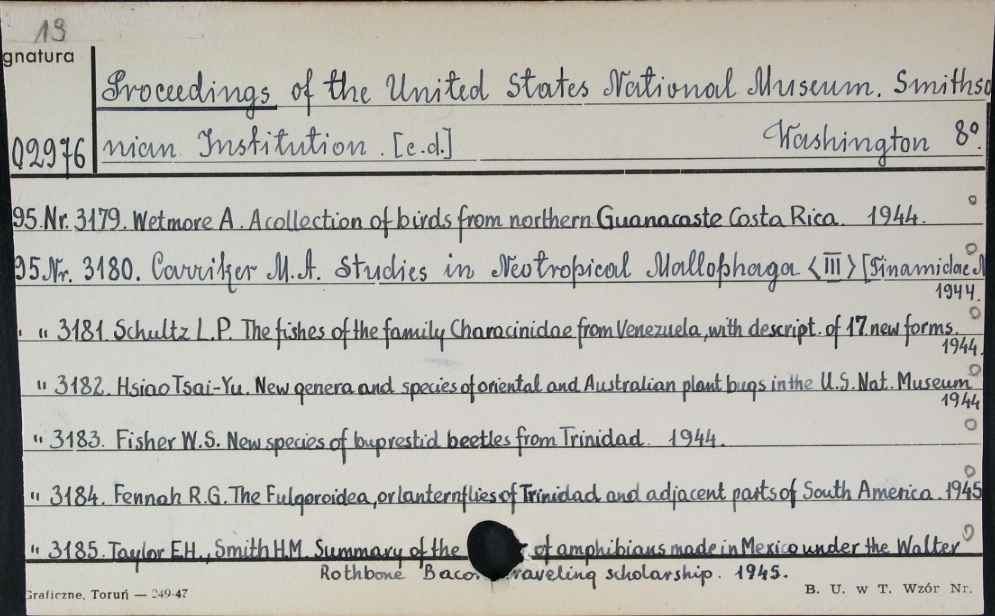 19
gnatura
Proceedings of the United States National Museum. Smithso
02976 nian Institution. [e.d.] Washington 8º.
95.Nr. 3179. Wetmore A. A collection of birds from northern Guanacaste Costa Rica. 1944.
95.Nr. 3180. Carriker M.A. Studies in Neotropical Mallophaga <III> [Tinamidae N
1944.
" 3181. Schultz L.P. The fishes of the family Characinidae from Venezuela, with descript. of 17 new forms.
1944.
" 3182. Hsiao Tsai-Yu. New genera and species of oriental and Australian plant bugs in the U.S. Nat. Museum
1944
" 3183. Fisher W.S. New species of buprestid beetles from Trinidad 1944.
" 3184. Fennah R.G. The Fulgoroidea, or lanternflies of Trinidad and adjacent parts of South America. 1945
" 3185. Taylor E.H., Smith H.M. Summary of the of amphibians made in Mexico under the Walter
Rothbone Baco raveling scholarship. 1945.
Graficzne, Toruń — 249-47 B. U. w T. Wzór Nr.